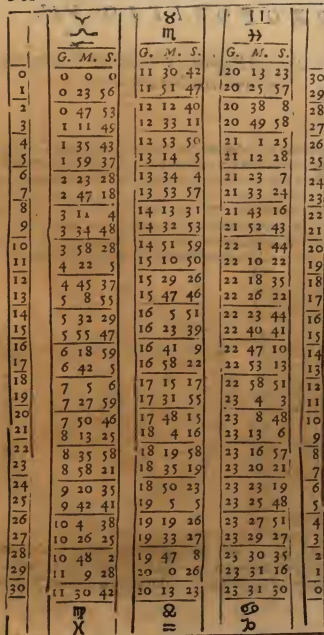 ♈ ♉ ♊
♎ ♏ ♐
G. M. S. G. M. S. G. M. S.
0 0 0 0 11 30 42 20 13 23 30
1 0 23 56 11 51 47 20 25 57 29
2 0 47 53 12 12 40 20 38 8 28
3 1 11 49 12 33 11 20 49 58 27
4 1 35 43 12 53 50 21 1 25 26
5 1 59 37 13 14 5 21 12 28 25
6 2 23 28 13 34 4 21 23 7 24
7 2 47 18 13 53 57 21 33 24 23
8 3 11 4 14 13 31 21 43 16 22
9 3 34 48 14 32 53 21 52 43 21
10 3 58 28 14 51 59 22 1 44 20
11 4 22 5 15 10 50 22 10 22 19
12 4 45 37 15 29 26 22 18 35 18
13 5 8 55 15 47 46 22 26 22 17
14 5 32 29 16 5 51 22 23 44 16
15 5 55 47 16 23 39 22 40 41 15
16 6 18 59 16 41 9 22 47 10 14
17 6 42 5 16 58 22 22 53 13 13
18 7 5 6 17 15 17 22 58 51 12
19 7 27 59 17 31 55 23 4 3 11
20 7 50 46 17 48 15 23 8 48 10
21 8 13 25 18 4 16 23 13 6 9
22 8 35 58 18 19 58 23 16 57 8
23 8 58 21 18 35 19 23 20 21 7
24 9 20 35 18 50 23 23 23 19 6
25 9 42 41 19 5 5 23 25 48 5
26 10 4 38 19 19 26 23 27 51 4
27 10 26 25 19 33 27 23 29 27 3
28 10 48 2 19 47 8 23 30 35 2
29 11 9 28 20 0 26 23 31 16 1
30 11 30 42 20 13 23 23 31 30 0
♍ ♌ ♋
♓ ♒ ♑